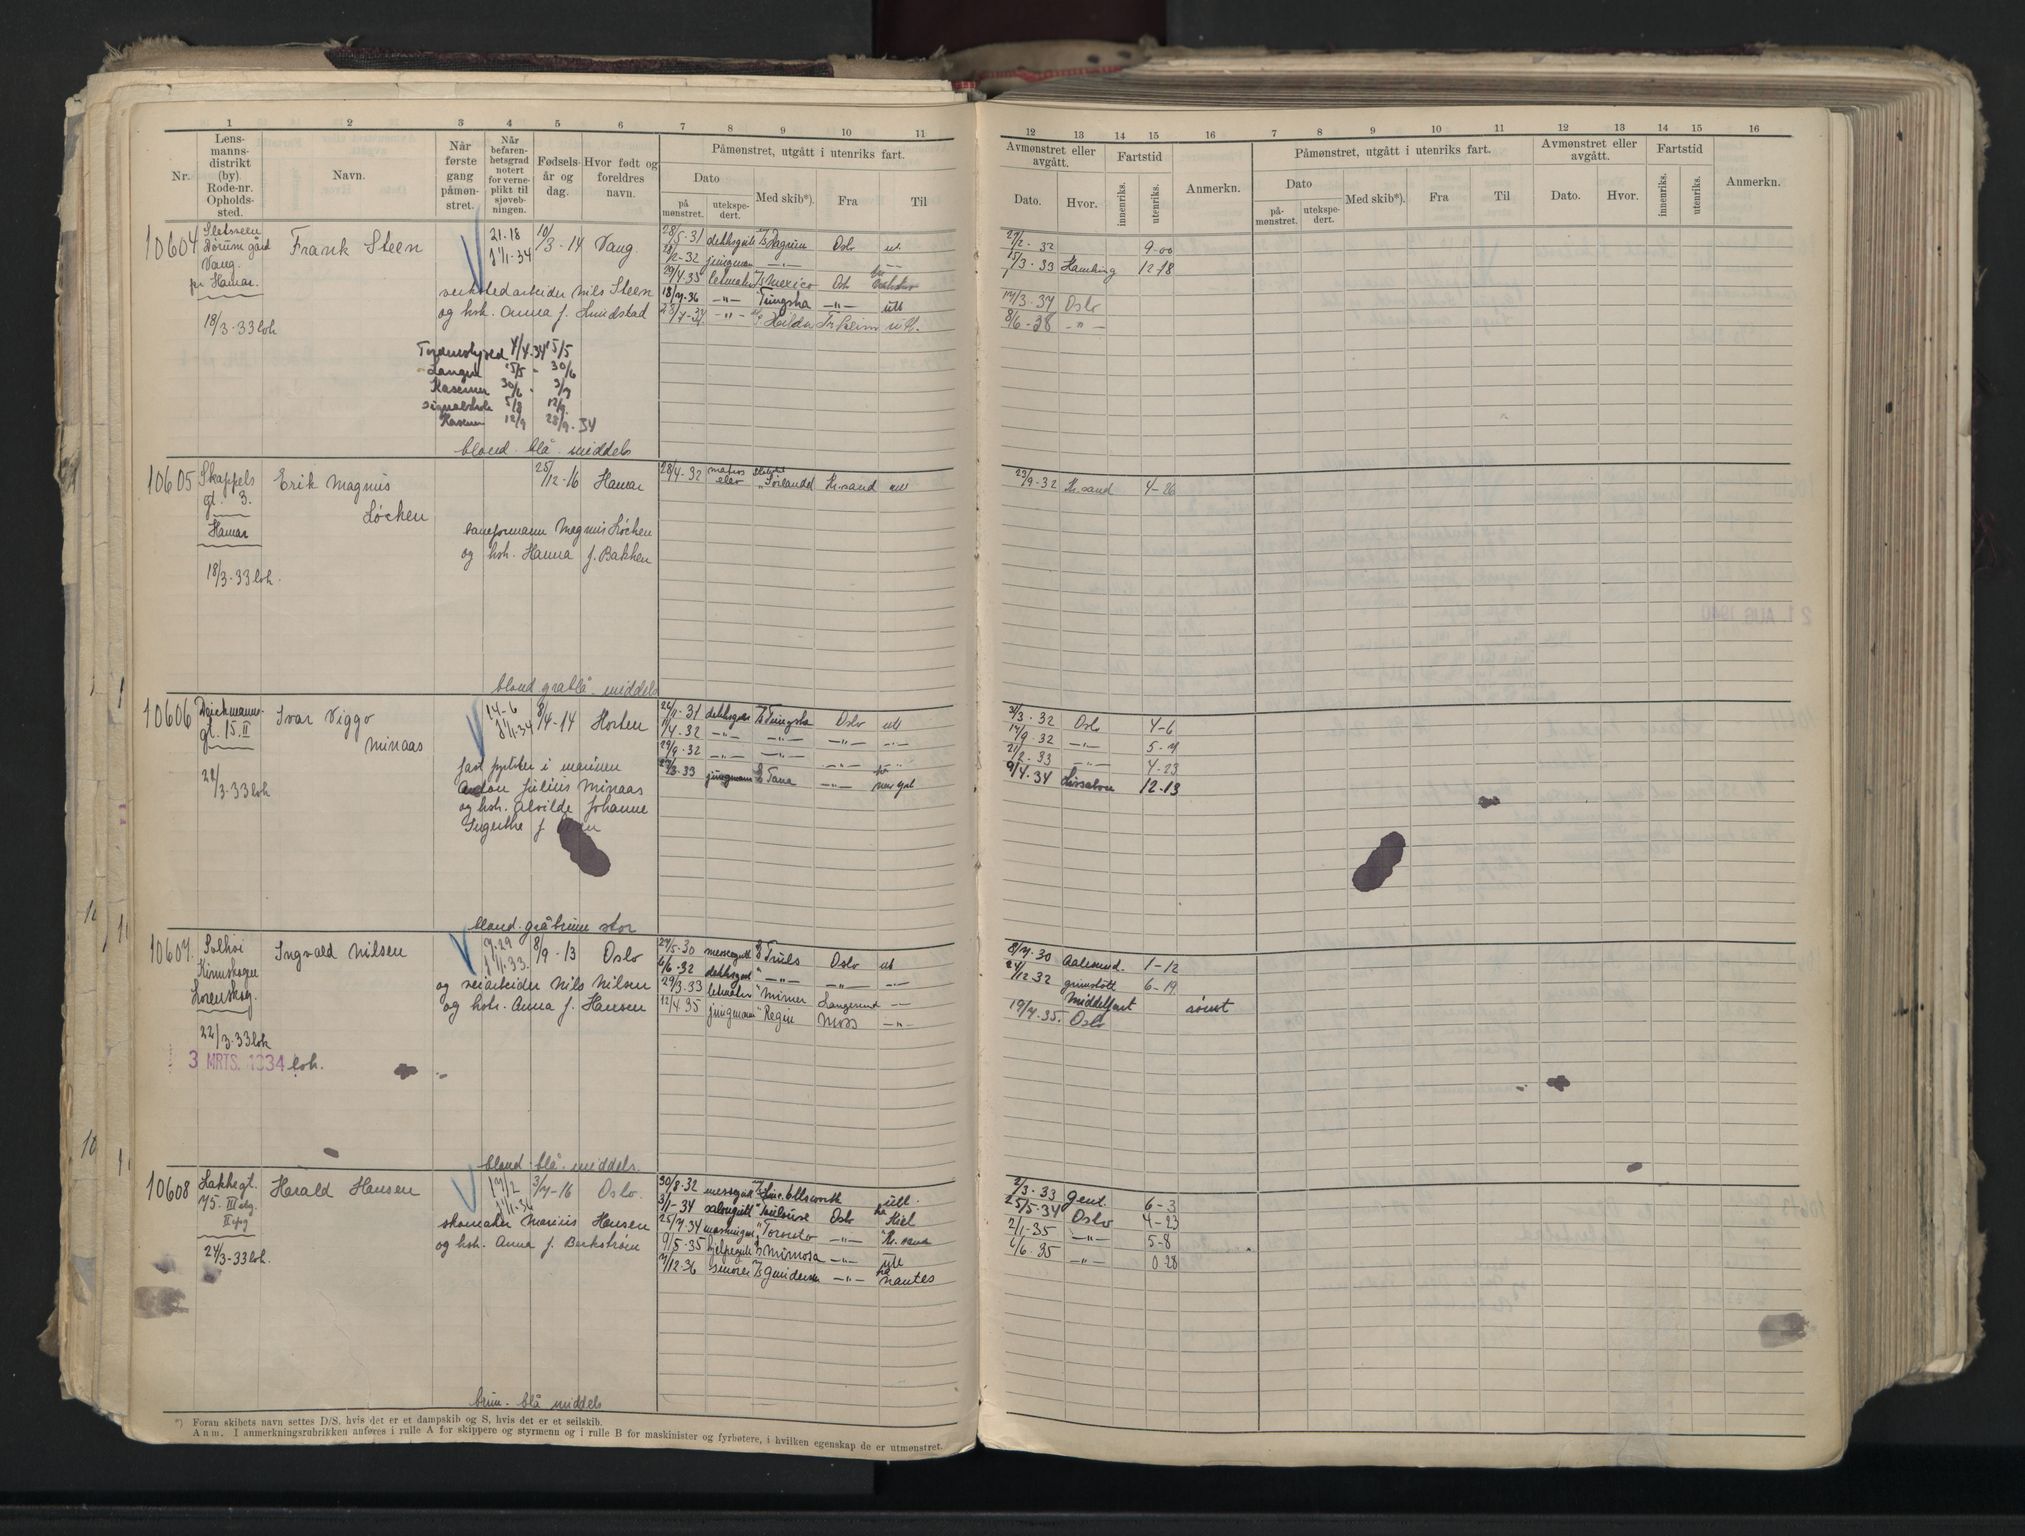 1 2 3 4 5 6 7 8 9 10 11
Nr. Lensmannsdistrikt (by). Rode-nr. Opholdssted. Navn. Når første gang påmønstret. Når befarenhetsgrad notert for verneplikt til sjøvebningen. Fødselsår og dag. Hvor født og foreldres navn. Påmønstret, utgått i utenriks fart.
Dato Med skib*). Fra Til
på mønstret. utekspedert.
12 13 14 15 16 7 8 9 10 11 12 13 14 15 16
Avmønstret eller avgått. Fartstid Anmerkn. Påmønstret, utgått i utenriks fart. Avmønstret eller avgått. Fartstid Anmerkn.
Dato. Hvor. innenriks. utenriks. Dato Med skib*). Fra Til Dato. Hvor. innenriks. utenriks.
påmønstret. utekspedert.
10604 Frank Steen 21-18 10/3-14 Vang
Vang.
pr Hamar.
1/1-34
verkstedarbeider Nils Steen
og hst. Anna f. Lundstad
18/3-33 loh
28/5-31 dekksgutt Oslo ut 27/2-32 9-00
jungmann 15/3-33 Hamburg 12-18
29/4-35 letmatr Mexico Oslo
18/7-36 -"- Tungsha -"- utt 17/3-37 Oslo
-"- Hilda 8/6-38 -"-
4/4-34 5/5
Langen 5/5 - 30/6
Kaserner 30/6 -
signalskole 5/8 12/9
12/9 28/9-34
blond blå middels
10605 Skappels Erik Magnus 25/12-16 Hamar
gt. 3. Løcken
Hamar
baneformann Magnus Løcken
og hst. Hanna f. Bakken
18/3-33 loh.
28/4-32 matros elev Sørlandet Kr.sand utt 23/9-32 Kr.sand 4-26
blond gråblå middels
10606 Deichmanns- Ivar Viggo 14-6 8/4-14 Horten
gt. 15.II Minaas 1/1-34
22/3-33 loh
i marinen
Anton Julius Minaas
og hst. Alvilde Johanne
26/11-31 dekksgutt Tungsha Oslo utt 31/3-32 Oslo 4-6
1/4-32 -"- -"- -"- -"- 17/9-32 -"- 5-7
29/9-32 -"- -"- -"- 21/2-33 -"- 4-23
jungmann Tana -"- 9/4-34 12-13
blond gråbrune stor
10607. Solhøi Ingvald Nilsen 9-29 8/9-13 Oslo
Lørenskog. 1/1-33.
veiarbeider Nils Nilsen
og hst. Anna f. Hansen
22/3-33 loh
3 MRTS. 1934 loh.
27/5-30 messegutt Truls Oslo ut 8/7-30 Aalesund. 1-12
6/6-32 dekksgutt -"- -"- 24/12-32 6-19
29/3-33 letmatr Mimer Langesund -"- Middelfart
12/4-35 jungmann Regin Moss -"- 19/7-35. Oslo
blond blå middels.
10608 Lakkegt. Harald Hansen 17/2 3/7-16 Oslo.
75. III 1/1-36
II opg
skomaker Marius Hansen
og hst. Anna f. Berkstrøm
24/3-33 loh.
30/8-32 messegutt Linc. Ellsworth utt. 2/3-33 Gent. 6-3
3/1-34 salongutt Toulouse Oslo Kiel 25/5-34 Oslo 4-23
25/7-34 Toronto -"- Kr.sand 2/1-35 -"- 5-8
9/5-35 hjelpegutt Mimosa -"- utt 6/6-35 -"- 0-28
7/12-36 smører Gundersen -"- Nantes
brun. blå middels
*) Foran skibets navn settes D/S, hvis det er et dampskib og S, hvis det er et seilskib.
Anm. I anmerkningsrubrikken anføres i rulle A for skippere og styrmenn og i rulle B for maskinister og fyrbøtere, i hvilken egenskap de er utmønstret.